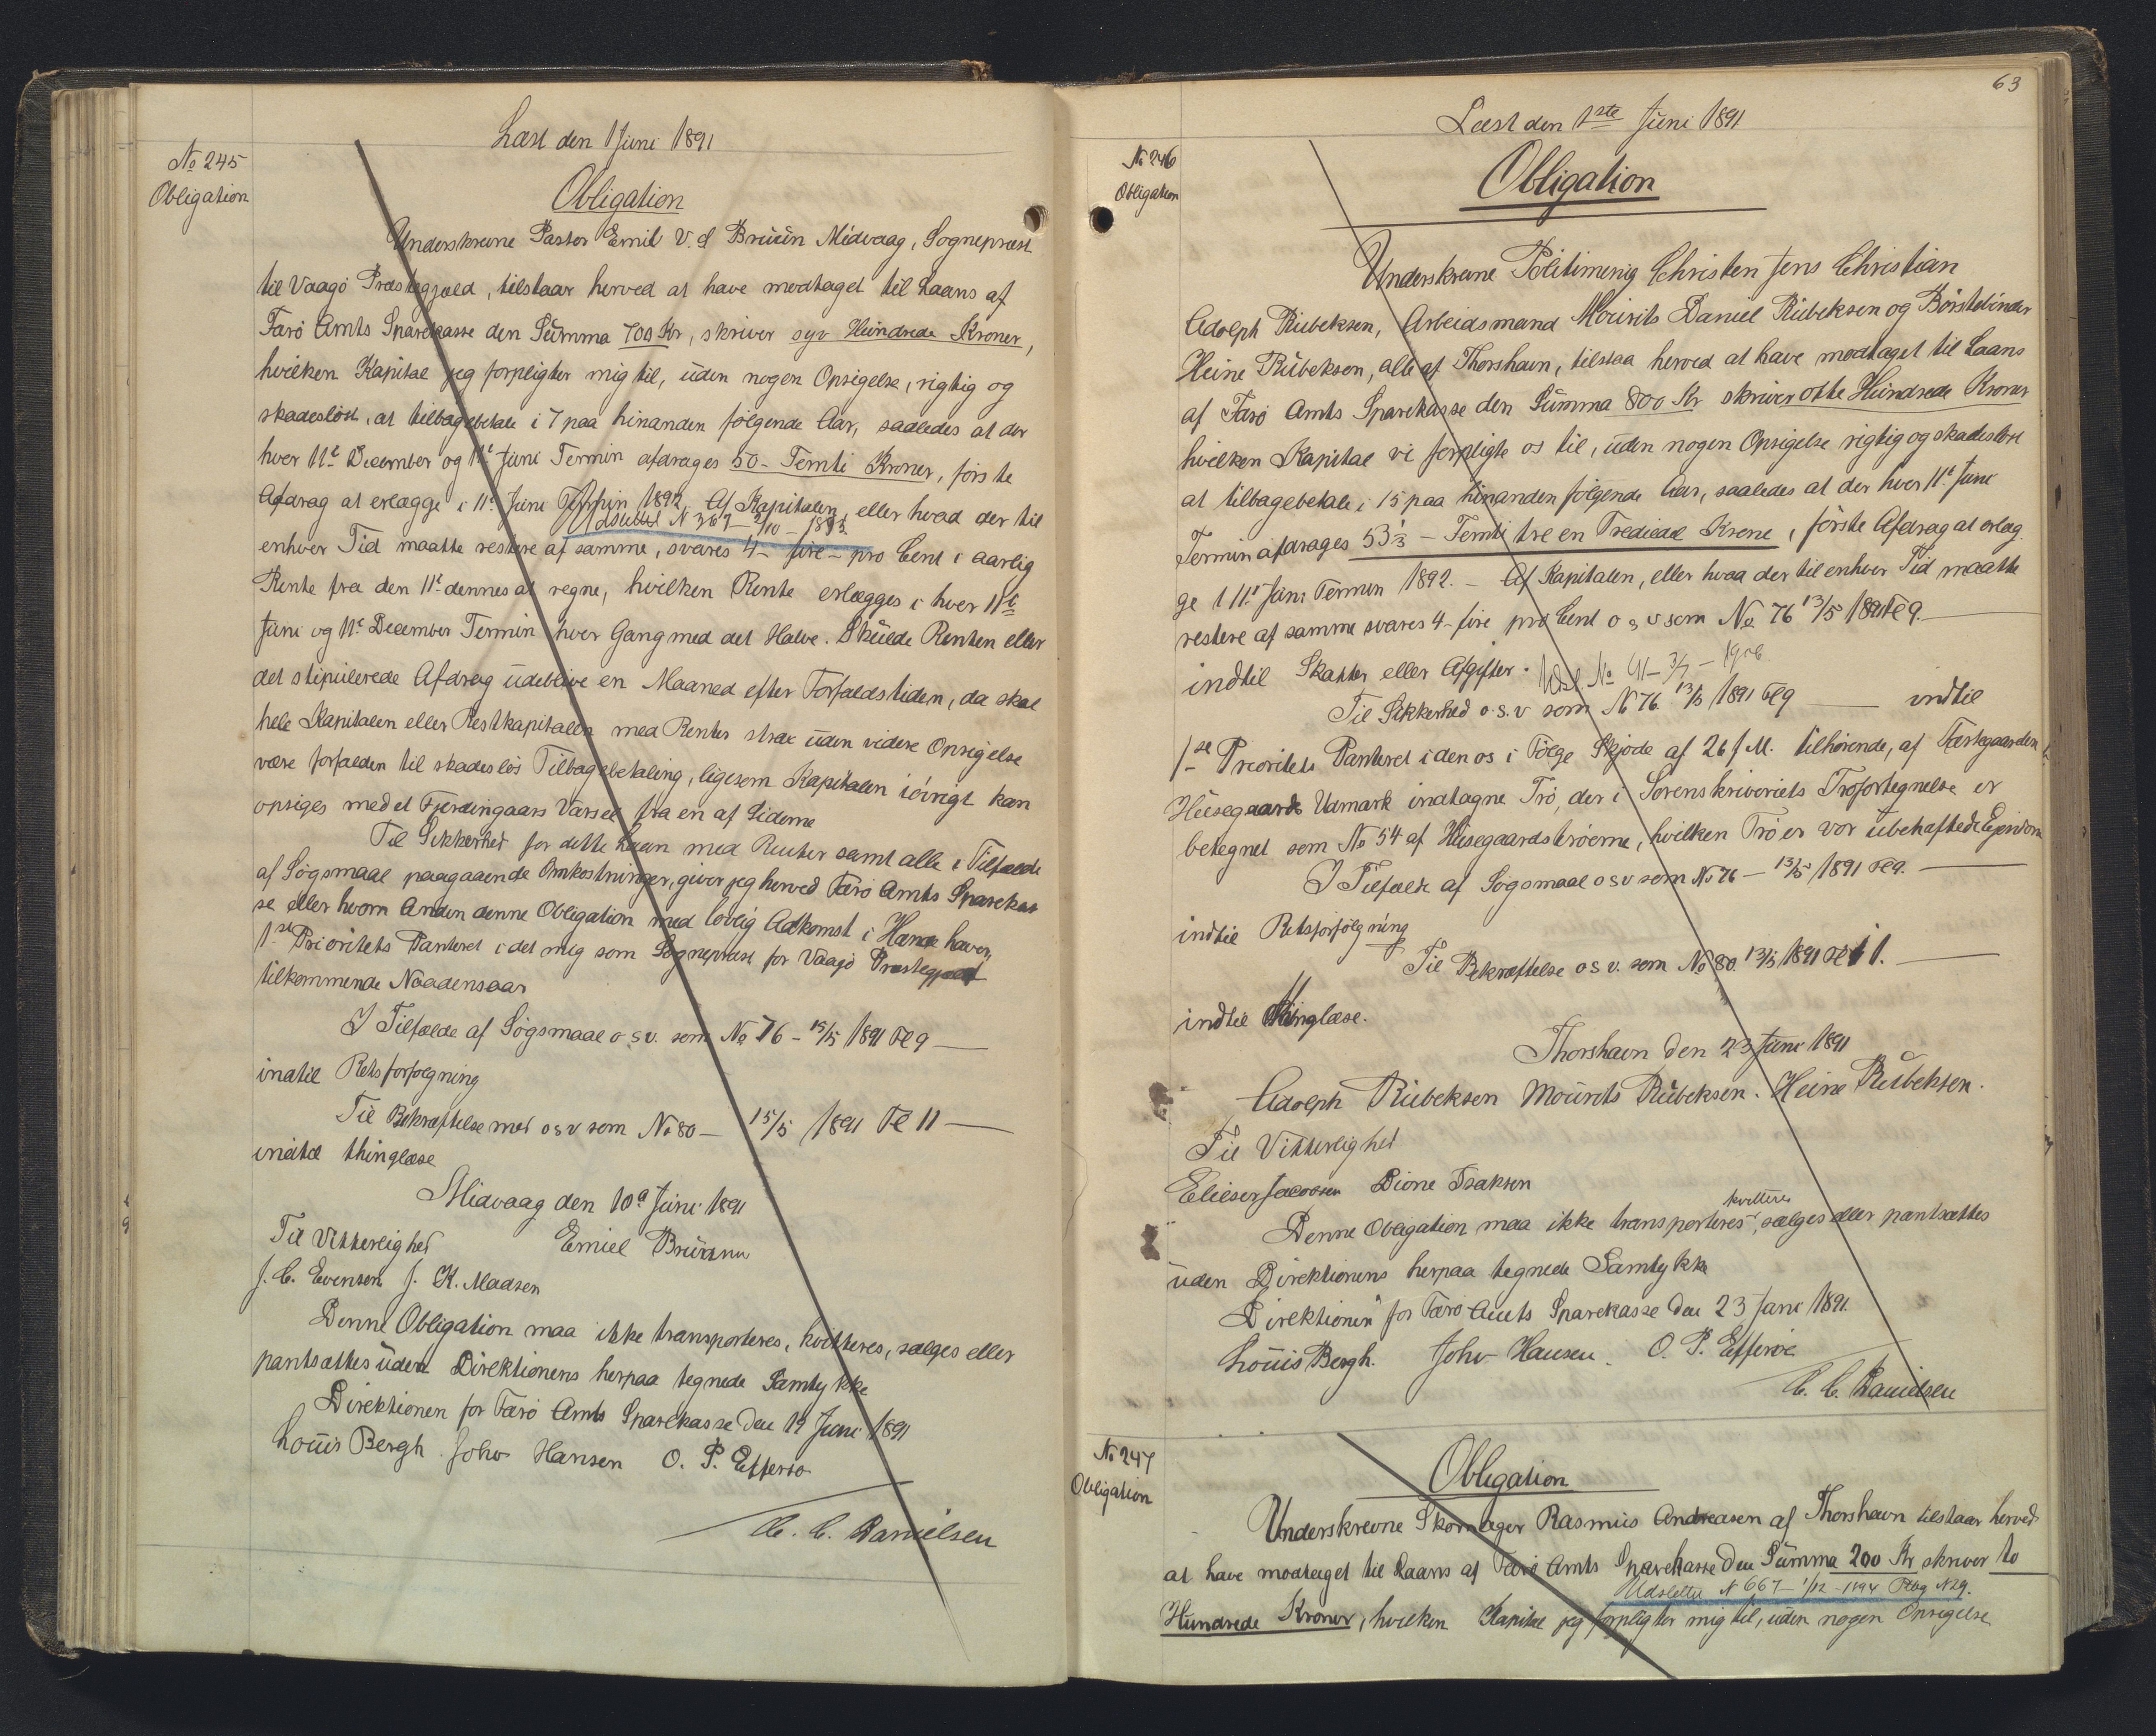 Læst den 1 Juni 1891
No 245
Obligation
Obligation
Underskrevne Pastor Emil V. d Bruün Midvaag, Sognepræst
til Vaagö Præstegjæld, tilstaar herved at have modtaget til Laans af
Færö Amts Sparekasse den Summa 700 Kr, skriver syv Hundrede Kroner,
hvilken Kapital jeg forpligter mig til, uden nogen Opsigelse, rigtig og
skadeslöst, at tilbagebetale i 7 paa hinanden fölgende Aar, saaledes at der
hver 11t December og 11t Juni Termin afdrages 50 - Femti Kroner, förste
Afdrag at erlægge i 11t Juni Termin 1892. Af Kapitalen, eller hvad der til
Udslettet N 367 - 2/10 - 1893
enhver Tid maatte restere af samme, svares 4 - fire - pro Cent i aarlig
Rente fra den 11t dennes at regne, hvilken Rente erlægges i hver 11t
Juni og 11t December Termin hver Gang med det Halve. Skulde Renten eller
det stipulerede Afdrag udeblive en Maaned efter Forfaldstiden, da skal
hele Kapitalen eller Restkapitalen med Renter strax uden videre Opsigelse
være forfalden til skadeslös Tilbagebetaling, ligesom Kapitalen iövrigt kan
opsiges med et Fjerdingaars Varsel fra en af Siderne
Til Sikkerhed for dette Laan med Renter samt alle i Tilfælde
af Sögsmaal paagaaende Omkostninger, giver jeg herved Færö Amts Sparekas
se eller hvem Anden denne Obligation med lovlig Adkomst i Hænde haver,
1ste Prioritets Panteret i det mig som Sognepræst for Vaagö Præstegjæld
tilkommende Naadensaar
I Tilfælde af Sögsmaal o.s.v. som No 76 - 13/5 1891 Fl 9
indtil Retsforfölgning
Til Bekræftelse med o s v som No 80 - 13/5 1891 Fl 11
indtil thinglæse
Midvaag den 10d Juni 1891
Til Vitterlighed Emiel Bruunn
J. C. Evensen J. K. Madsen
Denne Obligation maa ikke transporteres, kvitteres, sælges eller
pantsættes uden Direktionens herpaa tegnede Samtykke
Direktionen for Færö Amts Sparekasse den 19 Juni 1891
Louis Bergh. John Hansen O. P. Effersö
C. C. Danielsen
63
Læst den 1ste Juni 1891
No 246
Obligation
Obligation
Underskrevne Politimenig Christen Jens Christian
Adolph Rübeksen, Arbeidsmand Mourits Daniel Rübeksen og Börstebinder
Heine Rübeksen, alle af Thorshavn, tilstaa herved at have modtaget til Laans
af Færö Amts Sparekasse den Summa 800 Kr skriver otte Hundrede Kroner
hvilken Kapital vi forpligte os til, uden nogen Opsigelse rigtig og skadeslöst
at tilbagebetale i 15 paa hinanden fölgende Aar, saaledes at der hver 11t Juni
Termin afdrages 53 1/3 - Femti tre en Trediedel Krone, förste Afdrag at erlæg
ge i 11t Juni Termin 1892. - Af Kapitalen, eller hvad der til enhver Tid maatte
restere af samme svares 4 - fire pro Cent o s v som No 76 13/5 1891 Fl 9.
indtil Skatter eller Afgifter. Udsl No 41 - 3/7 - 1906
Til Sikkerhed o.s.v som No 76 13/5 1891 Fl 9 indtil
1ste Prioritets Panteret i den os i Fölge Skjöde af 26 f M. tilhörende, af Fæstegaarden
Husegaards Udmark indtagne Trö, der i Sorenskriveriets Tröfortegnelse er
betegnet som No 54 af Husegaardströerne, hvilken Trö er vor ubehæftede Ejendom
I Tilfælde af Sögsmaal o s v som No 76 - 13/5 1891 Fl 9.
indtil Retsforfölgning
Til Bekræftelse o s v. som No 80. 13/5 1891 Fl 11.
indtil thinglæse.
Thorshavn den 23 Juni 1891
Adolph Rübeksen Mourits Rübeksen. Heine Rübeksen.
Til Vitterlighed
Elieser Jacobsen Dione Isaksen
kvitteres
Denne Obligation maa ikke transporteres, sælges eller pantsættes
uden Direktionens herpaa tegnede Samtykke
Direktionen for Færö Amts Sparekasse den 23 Juni 1891.
Louis Bergh. John Hansen. O. P. Effersöe
C. C. Danielsen
No 247
Obligation
Obligation
Underskrevne Skomager Rasmus Andreasen af Thorshavn tilstaar herved
at have modtaget til Laans af Færö Amts Sparekasse den Summa 200 Kr skriver to
Udslettet N 667 - 1/12 - 1894
Hundrede Kroner, hvilken Kapital jeg forpligter mig til, uden nogen Opsigelse